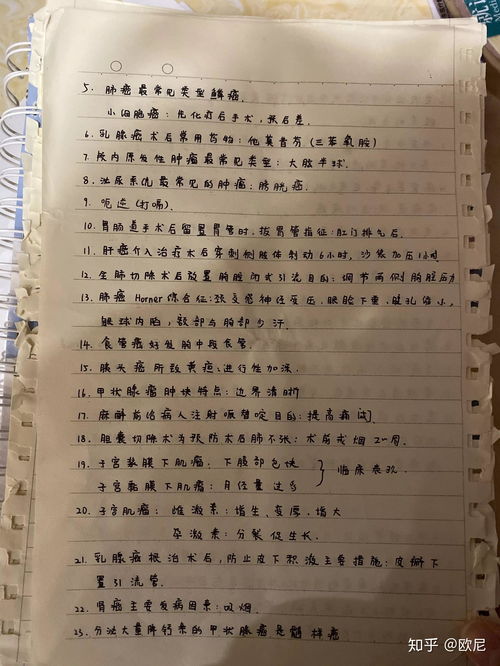 5. 肺癌最常见类型鳞癌.
小细胞癌：先化疗后手术，预后差.
6. 乳腺癌术后常用药物：他莫昔芬（三苯氧胺）
7. 颅内原发性肿瘤最常见类型：大脑半球.
8. 泌尿系统最常见的肿瘤：膀胱癌.
9. 呃逆（打嗝）.
10. 胃肠道手术后留置胃管时，拔胃管指征：肛门排气后.
11. 肝癌介入治疗术后穿刺侧肢体制动6小时，沙袋加压1小时.
12. 全肺切除术后放置胸腔闭式引流目的：调节两侧胸腔压力
13. 肺癌Horner综合征：颈交感神经受压，眼睑下垂，瞳孔缩小，
眼球内陷，额部与胸部少汗.
14. 食管癌好发胸中段食管.
15. 胰头癌所致黄疸：进行性加深.
16. 甲状腺瘤肿块特点：边界清晰
17. 麻醉前给病人注射哌替啶目的：提高痛阈.
18. 胆囊切除术为预防术后肺不张：术前戒烟2周.
19. 子宫浆膜下肌瘤：下腹部包块
子宫黏膜下肌瘤：月经量过多
临床表现.
20. 子宫肌瘤：雌激素：增生、变厚、增大
孕激素：分裂 促生长.
21. 乳腺癌根治术后，防止皮下积液主要措施：皮瓣下
置引流管.
22. 肾癌主要发病因素：吸烟.
23. 分泌大量降钙素的甲状腺癌是髓样癌
知乎 @欧尼